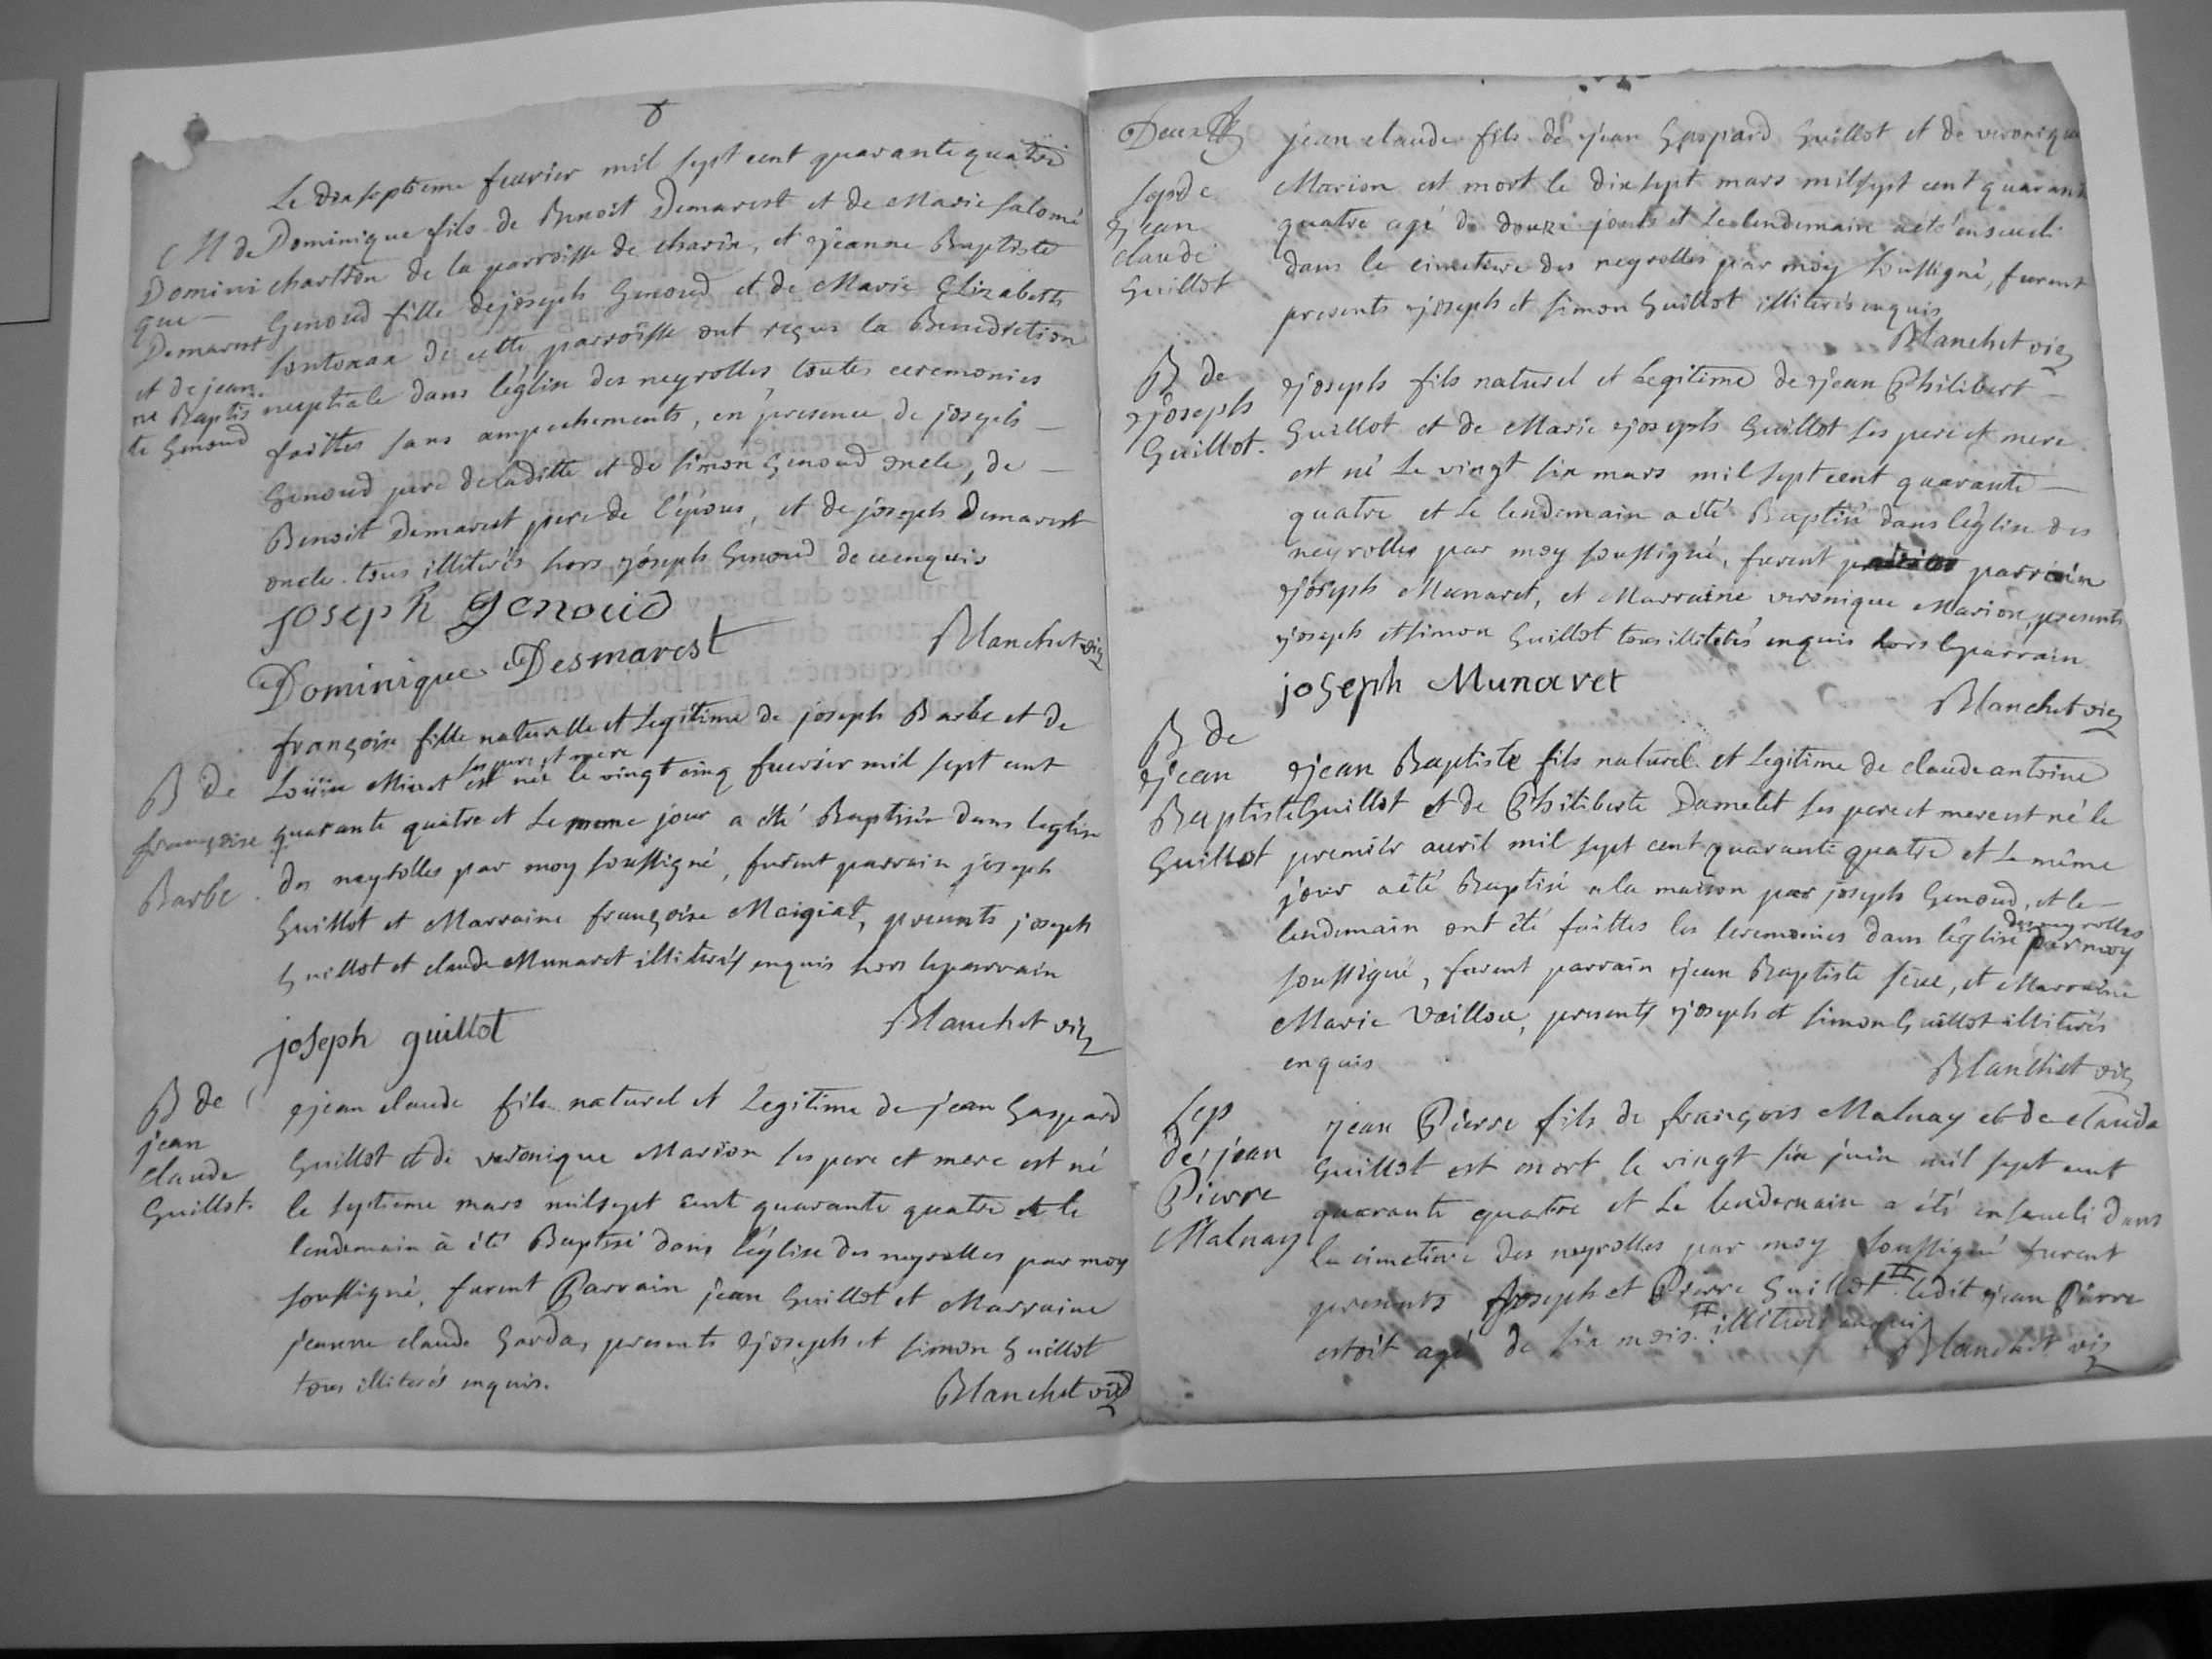 Le dix septieme feuvrier mil sept cent quarante quatre
M de
Domini
que
Demarest
et de jean
ne Baptis
te Genoud
Dominique fils de Benoit Demarest et de Marie salomé
charlton de la parroisse de charix, et jeanne Baptiste
Genoud fille de joseph Genoud et de Marie Elizabeth
de cette parroisse ont reçus la Benediction
nuptiale dans l'eglise des neyrolles toutes ceremonies
faittes sans ampechements, en presence de joseph
Genoud pere de laditte et de simon Genoud oncle, de
Benoit Demarest pere de l'épous, et de joseph Demarest
oncle tous illiterés hors joseph Genoud de ce enquis
joseph Genoud
Blanchet vic
Dominique Desmarest
B de
françoise
Barbe
françoise fille naturelle et legitime de joseph Barbe et de
ses pere et mere
Loüise Miret est née le vingt cinq fuevrier mil sept cent
quarante quatre et le meme jour a été Baptisée dans leglise
des neyrolles par moy soussigné, furent parrain joseph
Guillot et Marraine françoise Maigiat, presents joseph
Guillot et claude Munaret illiterés enquis hors leparrain
joseph guillot
Blanchet vic
B de
jean
claude
Guillot.
jean claude fils naturel et Legitime de jean Gaspard
Guillot et de veronique Marion ses pere et mere est né
le septieme mars milsept cent quarante quatre et le
lendemain à été Baptisé dans l'église des neyrolles par moy
soussigné, furent Parrain jean Guillot et Marraine
jeanne claude Garda, presents joseph et simon Guillot
tous illiterés enquis.
Blanchet vic
Deux
sepde
jean
claude
Guillot
jean claude fils de jean Gaspard Guillot et de veronique
Marion est mort le dix sept mars milsept cent quarante
quatre agé de douze jours et le lendemain a été enseueli
dans le cimetiere des neyrolles par moy soussigné, furent
presents joseph et simon Guillot illiterés enquis
Blanchet vic
B de
joseph
Guillot.
joseph fils naturel et Legitime de jean Philibert
Guillot et de Marie joseph Guillot ses pere et mere
est né Le vingt six mars mil sept cent quarante
quatre et Le lendemain a été Baptisé dans l'église des
neyrolles par moy soussigné, furent parrain
joseph Munaret, et Marraine veronique Marion, presents
joseph et simon Guillot tous illiterés enquis hors leparrain
joseph Munaret
Blanchet vic
B de
jean
Baptiste
Guillot
jean Baptiste fils naturel et Legitime de claude antoine
Guillot et de Philiberte Damelet ses pere et mere est né le
premier avril mil sept cent quarante quatre et Le même
jour a été Baptisé a la maison par joseph Genoud, et le
lendemain ont été faittes les ceremonies dans l'église des neyrolles par moy
soussigné, furent parrain jean Baptiste seve, et Marraine
Marie Vaillou, presents joseph et simon Guillot illiterés
enquis
Blanchet vic
sep
de jean
Pierre
Malnay
jean Pierre fils de françois Malnay et de claude
Guillot est mort le vingt six juin mil sept cent
quarante quatre et Le lendemain a été enseueli dans
le cimetiere des neyrolles par moy soussigné furent
presents joseph et Pierre Guillot ledit jean Pierre
estoit agé de six mois. illiterés enquis
Blanchet vic